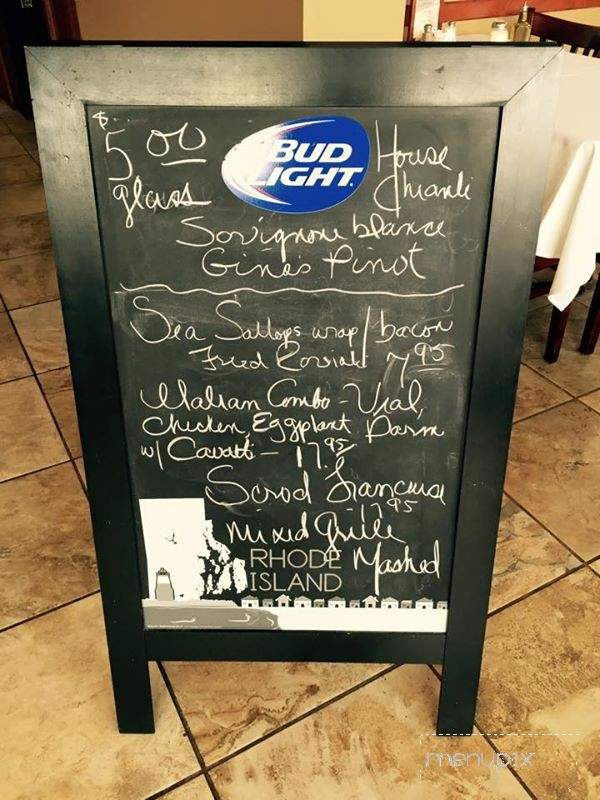 $5.00
glass
BUD
LIGHT
House
Chianti
Sovignone blance
Ginos Pinot
Sea Sallops wrap/bacon
Fried 7.95
Italian Combo - Vial,
Chicken, Eggplant Parm
w/ Cavati - 17.95
Scrod Francaise
17.95
mixed Grille
Mashed
RHODE
ISLAND
menupix